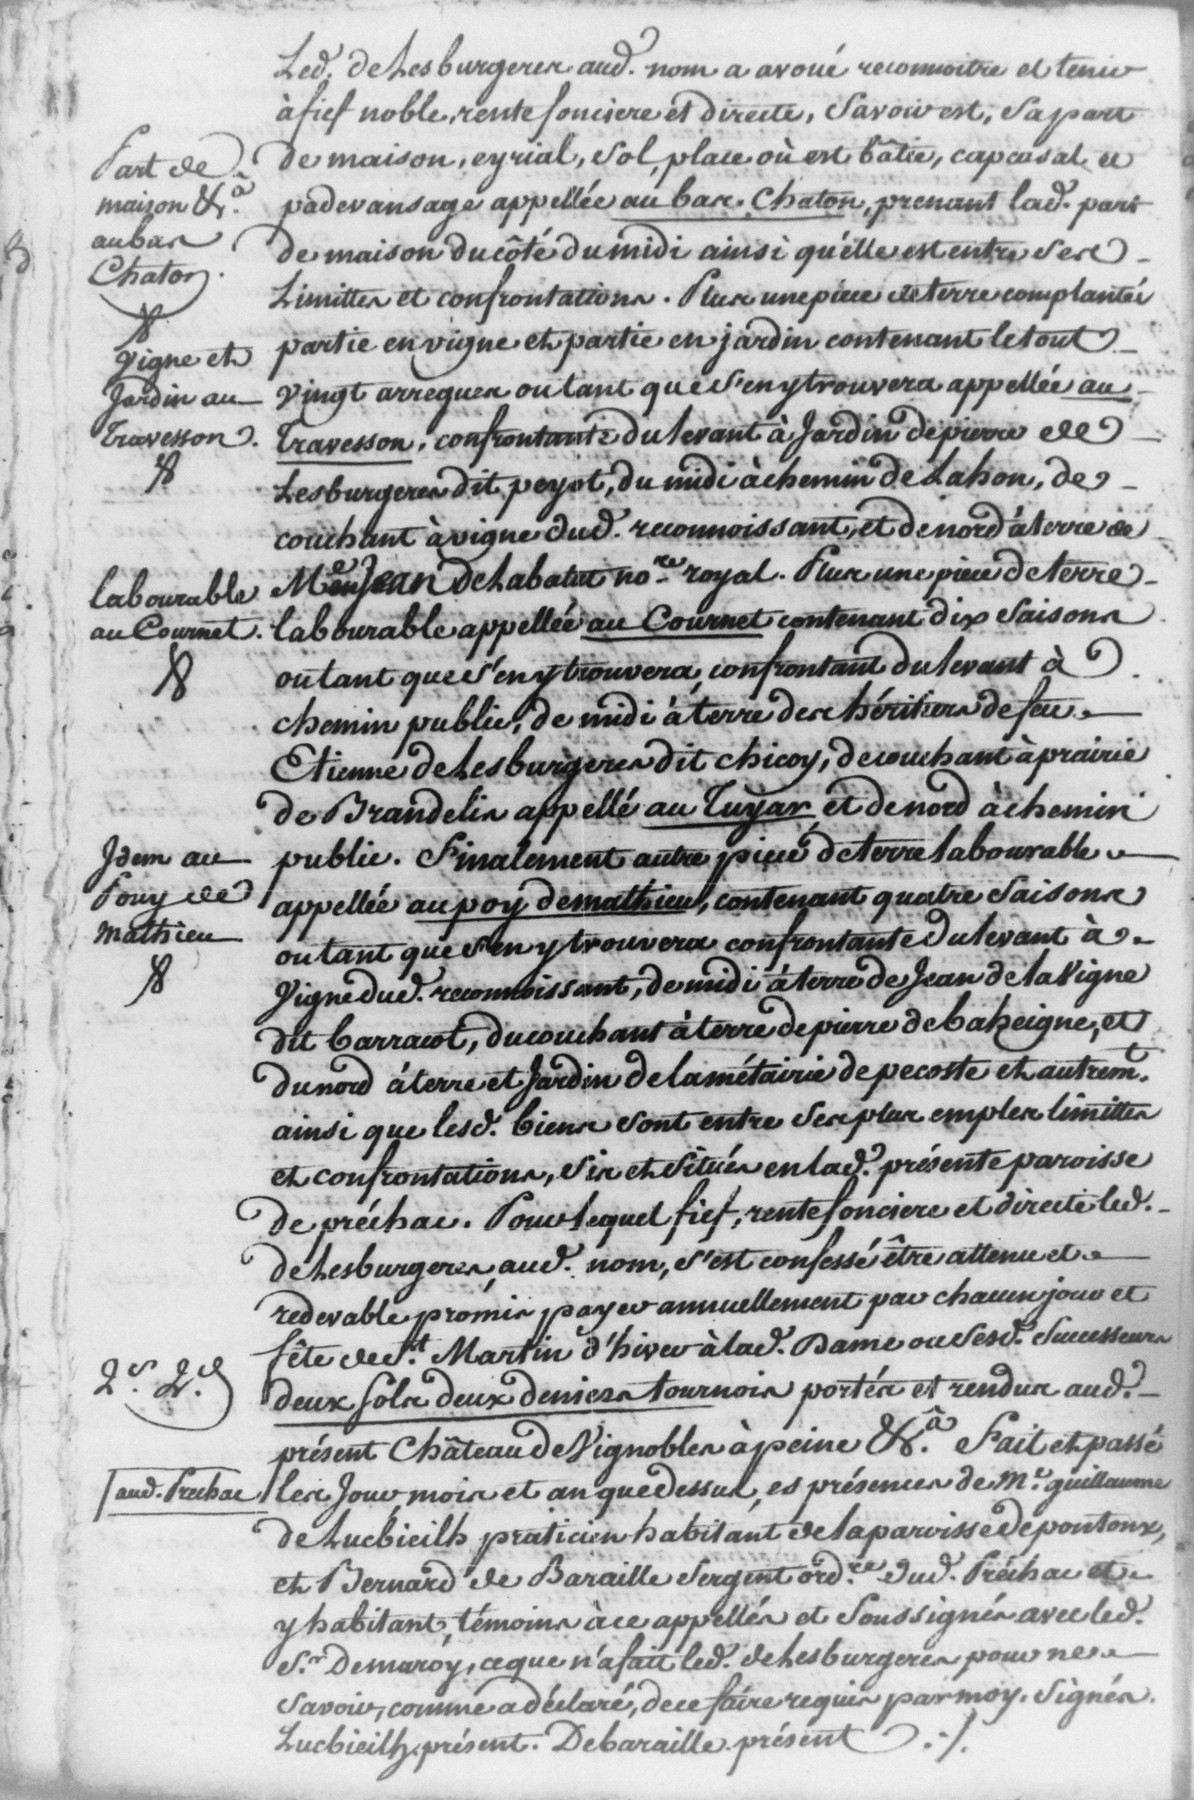 Led. de Lesburgeres aud. nom a avoué reconnoitre et tenir
à fief noble, rente fonciere et directe, Savoir est, Sa part
Part de
de maison, eyrial, Sol, place où est bâtie, capcasal et
maison &.ª
padevansage appellée au bas Chaton, prenant lad. part
au bas
de maison du côté du midi ainsi qu'elle est entre Ses
Chaton.
Limittes et confrontations. Plus une piece de terre complantée
Vigne et
partie en vigne et partie en jardin contenant le tout
Jardin au
Vingt arregues ou tant que S'en y trouvera appellée au
Travesson.
Travesson, confrontante du levant à Jardin de pierre de
Lesburgeres dit peyot, du midi à chemin de Lahon, de
couchant à vigne dud. reconnoissant, et de nord à terre de
labourable
Me Jean de Labatut no.re royal. Plus une piece de terre
au Cournet.
labourable appellée au Cournet contenant dix Saisons
ou tant que S'en y trouvera, confrontant du levant à
chemin public, de midi à terre des héritiers de feu
Etienne de Lesburgeres dit chicoy, de couchant à prairie
de Brandelis appellé au Tuyar et de nord à chemin
Idem au
public. Finalement autre piece de terre labourable
Pouy de
appellée au poy de mathieu, contenant quatre Saisons
Mathieu
ou tant que S'en y trouvera confrontante du levant à
Vigne dud. reconnoissant, de midi à terre de Jean de la Vigne
dit barracot, du couchant à terre de pierre de baheigne, et
du nord à terre et Jardin de la métairie de pecoste et autrem.t
ainsi que lesd. biens sont entre Ses plus amples limittes
et confrontations, Sis et Situés en lad. présente paroisse
de préchac. Pour lequel fief, rente fonciere et directe led.
de Lesburgeres, aud. nom, S'est confessé être attenu et
redevable promis payer annuellement par chacun jour et
fête de S.t Martin d'hiver à lad. Dame ou Sesd. Successeurs
2.s 2.d
deux Sols deux deniers tournois portés et rendus aud.
présent Château de Vignobles à peine &.ª Fait et passé
aud. Prechac
les Jour, mois et an que dessus, es présences de M.e guillaume
de Lucbieilh praticien habitant de la paroisse de pontonx,
et Bernard de Baraille Sergent ord.re dud. Préchac et
y habitant, témoins à ce appellés et Soussignés avec led.
S.r Demaroy, ce que n'a fait led. de Lesburgeres pour ne
Savoir, comme a déclaré, de ce faire requis par moy. Signés.
Lucbieilh présent. Debaraille présent